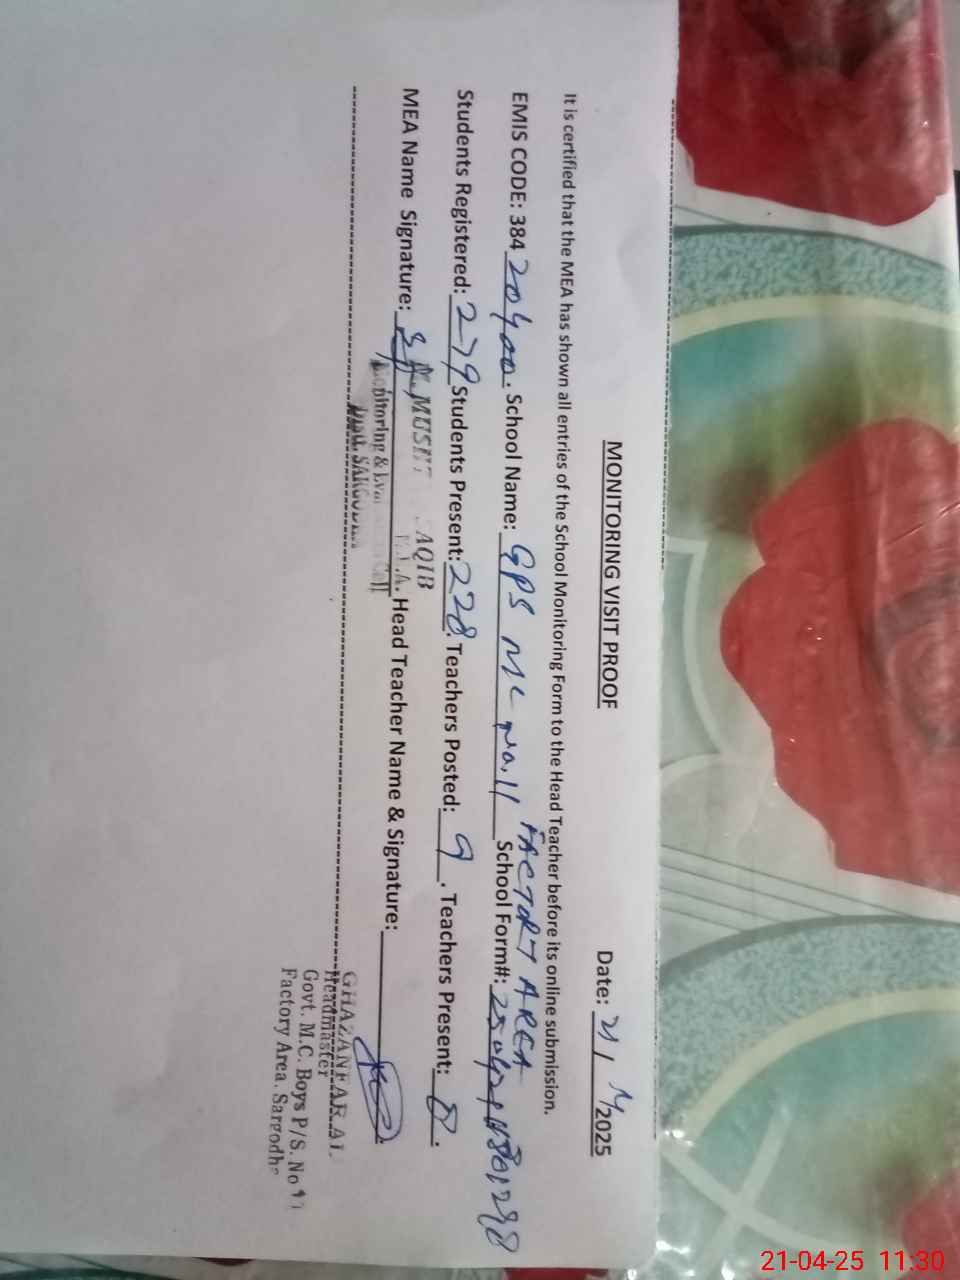 MONITORING VISIT PROOF
Date: 21/4/2025
It is certified that the MEA has shown all entries of the School Monitoring Form to the Head Teacher before its online submission.
EMIS CODE: 38420400. School Name: GPS MC No. 11 FACTORY AREA School Form#:
Students Registered: 279 Students Present: 228. Teachers Posted: 9. Teachers Present: 8.
MEA Name Signature: Head Teacher Name & Signature:
AQIB
Monitoring &
Distt. SARGODHA
GHAZANFAR AL
Headmaster
Govt. M.C. Boys P/S. No
Factory Area. Sargodh
21-04-25 11:30